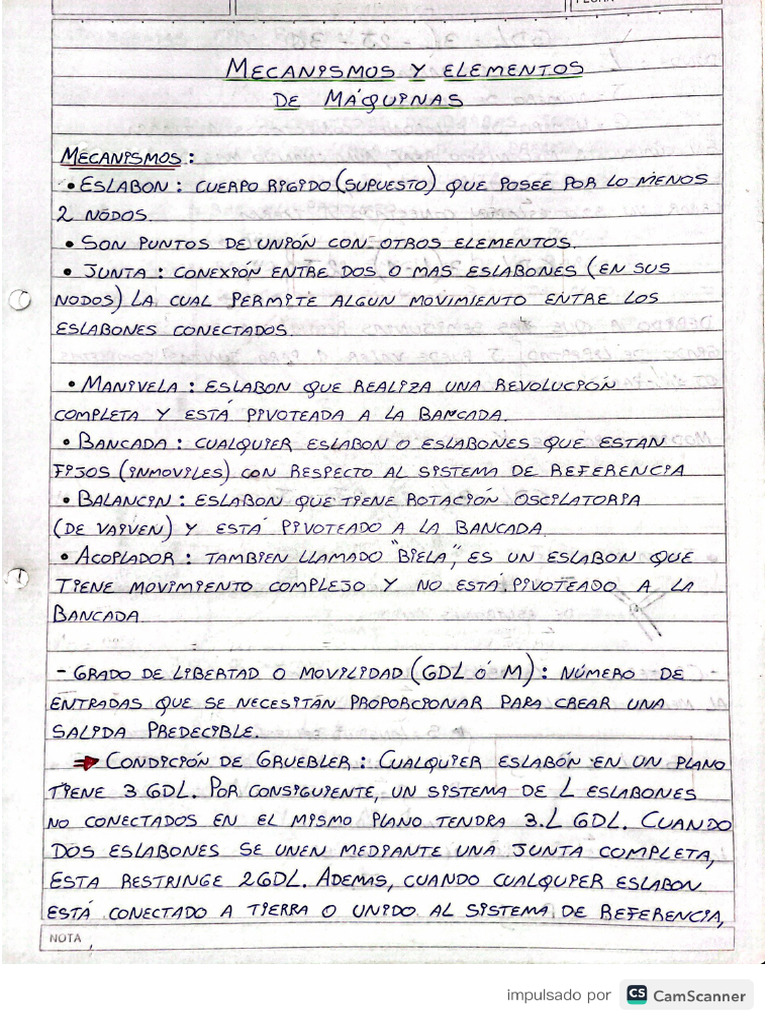 FECHA
MECANISMOS Y ELEMENTOS
DE MÁQUINAS
MECANISMOS:
• ESLABON: CUERPO RIGIDO (SUPUESTO) QUE POSEE POR LO MENOS
2 NODOS.
• SON PUNTOS DE UNIÓN CON OTROS ELEMENTOS.
• JUNTA: CONEXIÓN ENTRE DOS O MAS ESLABONES (EN SUS
NODOS) LA CUAL PERMITE ALGUN MOVIMIENTO ENTRE LOS
ESLABONES CONECTADOS.
• MANIVELA: ESLABON QUE REALIZA UNA REVOLUCIÓN
COMPLETA Y ESTÁ PIVOTEADA A LA BANCADA.
• BANCADA: CUALQUIER ESLABON O ESLABONES QUE ESTAN
FIJOS (INMOVILES) CON RESPECTO AL SISTEMA DE REFERENCIA
• BALANCIN: ESLABON QUE TIENE ROTACIÓN OSCILATORIA
(DE VAIVEN) Y ESTÁ PIVOTEADO A LA BANCADA.
• ACOPLADOR: TAMBIEN LLAMADO "BIELA", ES UN ESLABON QUE
TIENE MOVIMIENTO COMPLEJO Y NO ESTÁ PIVOTEADO A LA
BANCADA.
- GRADO DE LIBERTAD O MOVILIDAD (GDL Ó M): NÚMERO DE
ENTRADAS QUE SE NECESITÁN PROPORCIONAR PARA CREAR UNA
SALIDA PREDECIBLE.
⇒ CONDICIÓN DE GRUEBLER: CUALQUIER ESLABÓN EN UN PLANO
TIENE 3 GDL. POR CONSIGUIENTE, UN SISTEMA DE L ESLABONES
NO CONECTADOS EN EL MISMO PLANO TENDRA 3.L GDL. CUANDO
DOS ESLABONES SE UNEN MEDIANTE UNA JUNTA COMPLETA,
ESTA RESTRINGE 2GDL. ADEMAS, CUANDO CUALQUIER ESLABON
ESTÁ CONECTADO A TIERRA O UNIDO AL SISTEMA DE REFERENCIA,
NOTA
impulsado por CS CamScanner